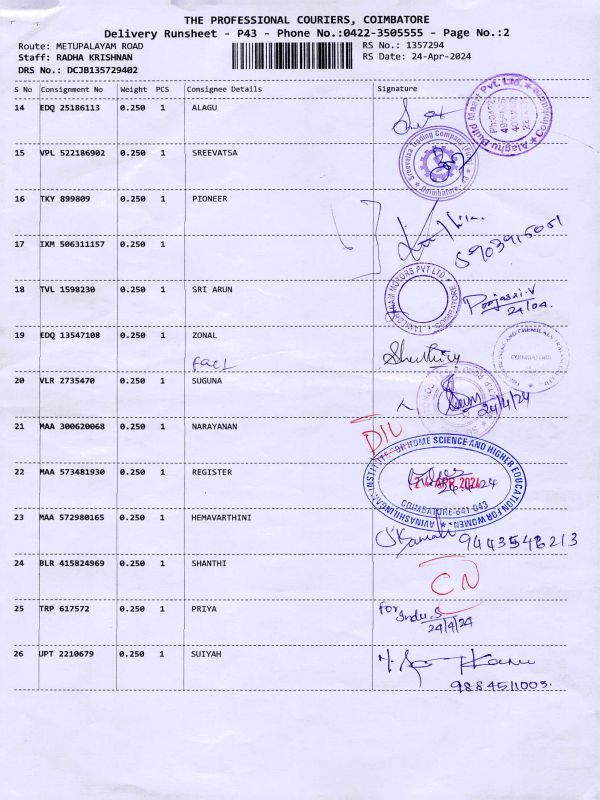 THE PROFESSIONAL COURIERS, COIMBATORE
Delivery Runsheet - P43 - Phone No.:0422-3505555 - Page No.:2
Route: METUPALAYAM ROAD
RS No.: 1357294
Staff: RADHA KRISHNAN
RS Date: 24-Apr-2024
DRS No.: DCJB135729402
S No Consignment No Weight PCS Consignee Details Signature
14 EDQ 25186113 0.250 1 ALAGU
Alaghu Build Maart Pvt. Ltd. Coimbatore
15 VPL 522186902 0.250 1 SREEVATSA
Sreevatsa Trading Company
Coimbatore
16 TKY 899809 0.250 1 PIONEER
17 IXM 506311157 0.250 1
5903915051
18 TVL 1598230 0.250 1 SRI ARUN
MOTORS PVT LTD
COIMBATORE
Poojasri.V
24/04
19 EDQ 13547108 0.250 1 ZONAL
FACL
AND CHEMICALS
COIMBATORE
20 VLR 2735470 0.250 1 SUGUNA
24/4/24
21 MAA 300620068 0.250 1 NARAYANAN
DIL
22 MAA 573481930 0.250 1 REGISTER
AVINASHILINGAM INSTITUTE FOR HOME SCIENCE AND HIGHER EDUCATION FOR WOMEN
24 APR 2024
COIMBATORE-641 043
23 MAA 572980165 0.250 1 HEMAVARTHINI
9443548213
24 BLR 415824969 0.250 1 SHANTHI
CN
25 TRP 617572 0.250 1 PRIYA
for
Indu.S
24/4/24
26 UPT 2210679 0.250 1 SUIYAH
9884511003.